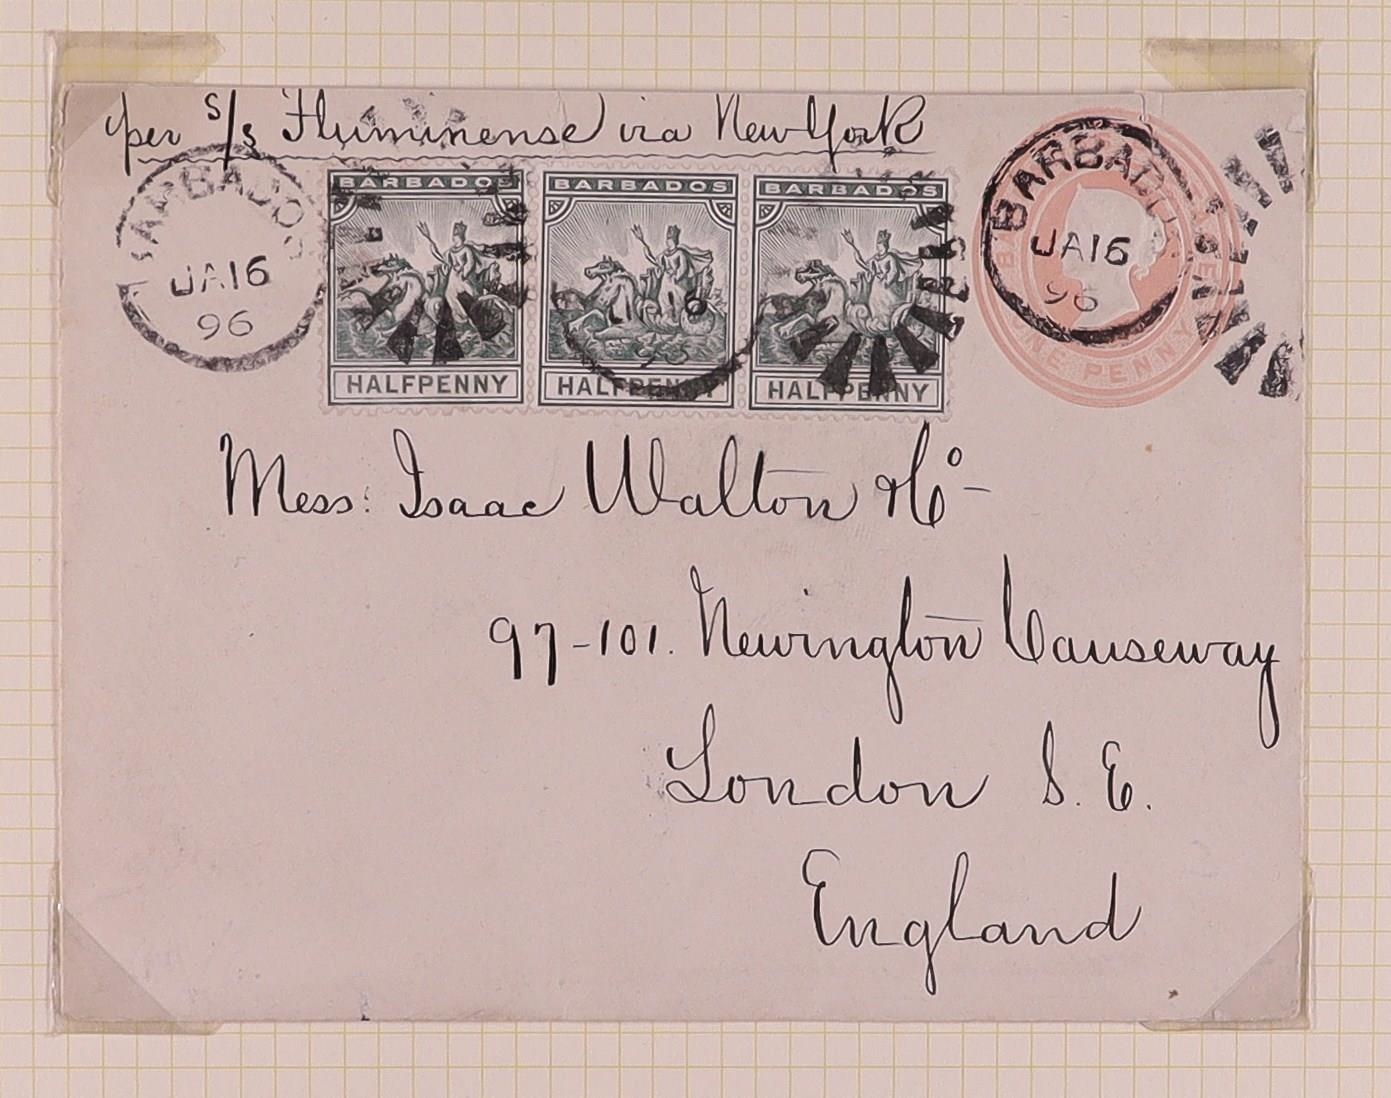 per s/s Fluminense via New York
BARBADOS
JA16
96
BARBADOS
HALFPENNY
BARBADOS
HALFPENNY
BARBADOS
HALFPENNY
BARBADOS
JA16
96
ONE PENNY
Mess: Isaac Walton & Co -
97-101. Newington Causeway
London S. E.
England